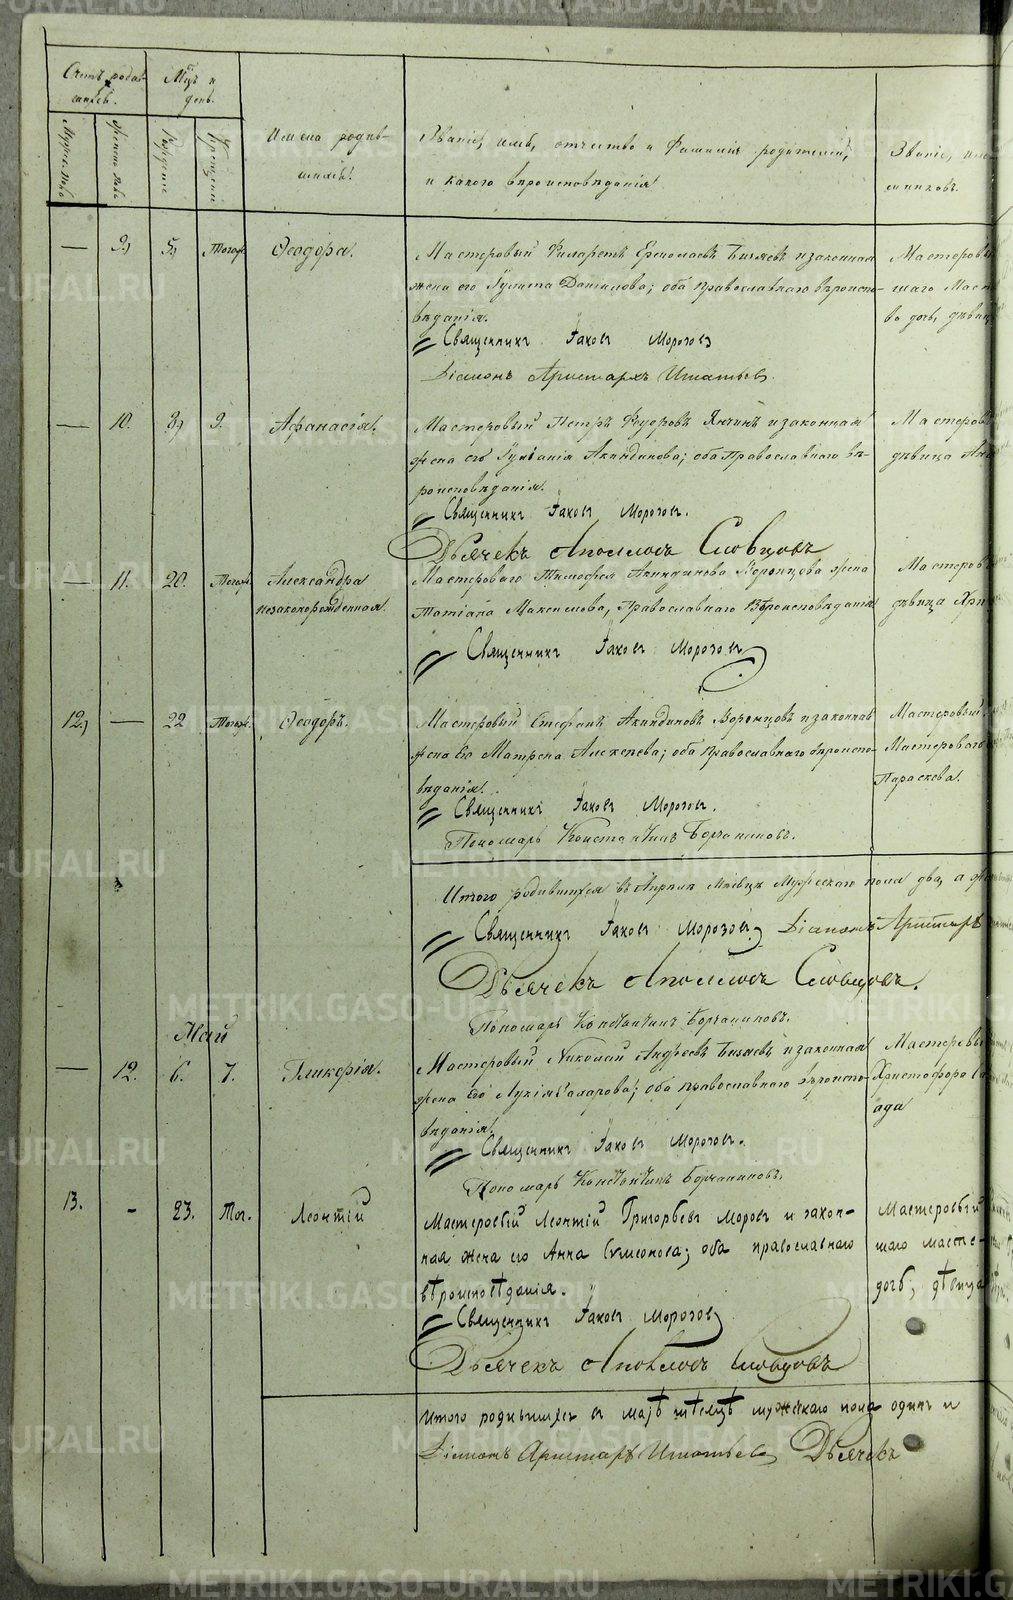 METRIKI.GASO-URAL.RU
Счетъ родив-
шихся.
Мцъ и
день.
Имена родив-
шихся.
Званіе, имя, отчество и фамилія родителей,
и какого вѣроисповѣданія.
Званіе, имя
Мужеска
Женска
Рожденія
Крещенія
— 9. 5. Тогож. Ѳеодора.
Мастеровый Филаретъ Ермолаевъ и законная
жена его Улита Данилова; оба православнаго вѣроиспо-
вѣданія.
Священникъ Іаковъ Морозовъ
Діаконъ Аристархъ Игнатьевъ
Мастеров
шаго Маст
ва дочь, дѣвиц
— 10. 8. 9. Афанасія.
Мастеровый Петръ Ѳедоровъ и законная
жена его Іуліанія Акиндинова; оба Православнаго вѣ-
роисповѣданія.
Священникъ Іаковъ Морозовъ.
Дьячекъ Аполлосъ Словцовъ
Мастеров
дѣвица
— 11. 20. Тогож. Александра
незаконорожденная.
Мастероваго Тимофея Акиндинова Воронцова жена
Татіана Максимова, Православнаго Вѣроисповѣданія
Священникъ Іаковъ Морозовъ
Мастеров
дѣвица Хри
12. — 22 Тогож. Ѳеодоръ.
Мастеровый Стефанъ Акиндиновъ Воронцовъ и законная
жена Его Матрена Алексѣева; оба православнаго вѣроиспо-
вѣданія.
Священникъ Іаковъ Морозовъ.
Пономарь Константинъ Борчаниновъ.
Мастеровый
Мастероваго
Параскева.
Итого родившихся въ Апрѣлѣ Мѣсяцѣ Мужескаго пола два, а
Священникъ Іаковъ Морозовъ Діаконъ Аристархъ
Дьячекъ Аполлосъ Словцовъ.
Пономарь Константинъ Борчаниновъ.
Май
— 12. 6. 7. Гликерія.
Мастеровый Николай Андреевъ и законная
жена Его Лукія Захарова; оба православнаго вѣроиспо-
вѣданія.
Священникъ Іаковъ Морозовъ.
Пономарь Константинъ Борчаниновъ.
Мастеровы
Христофора
13. - 23. Тог. Леонтій
Мастеровый Леонтій Григорьевъ Моровъ и закон-
ная жена его Анна Симеонова; оба православнаго
вѣроисповѣданія.
Священникъ Іаковъ Морозовъ
Дьячекъ Аполлосъ Словцовъ
Мастеровый
шаго масте-
дочь, дѣвица
Итого родившихся въ маѣ мѣсяцѣ мужескаго пола одинъ и
Діаконъ Аристархъ Игнатьевъ Дьячекъ